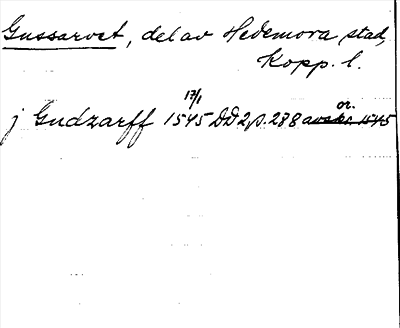 Gussarvet, del av Hedemora stad,
Kopp. l.
j Gudzarff 17/1 1545 DD 2, s. 288 avskr. 1545 or.